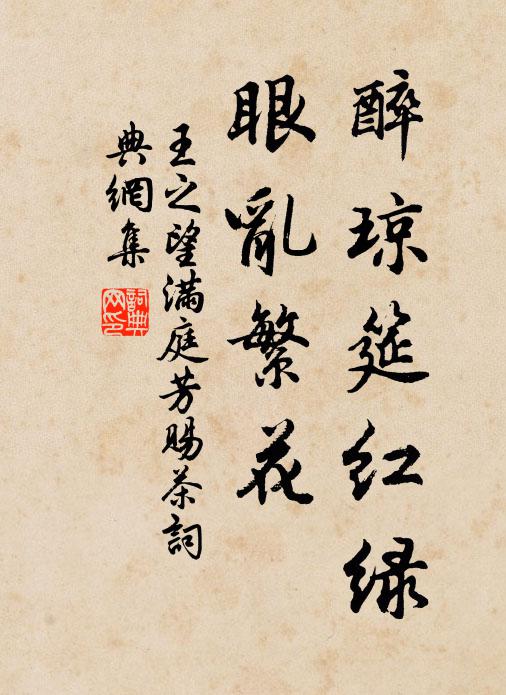 醉琼筵红绿
眼亂繁花
王之望满庭芳賜茶詞
典網集
詞典网印